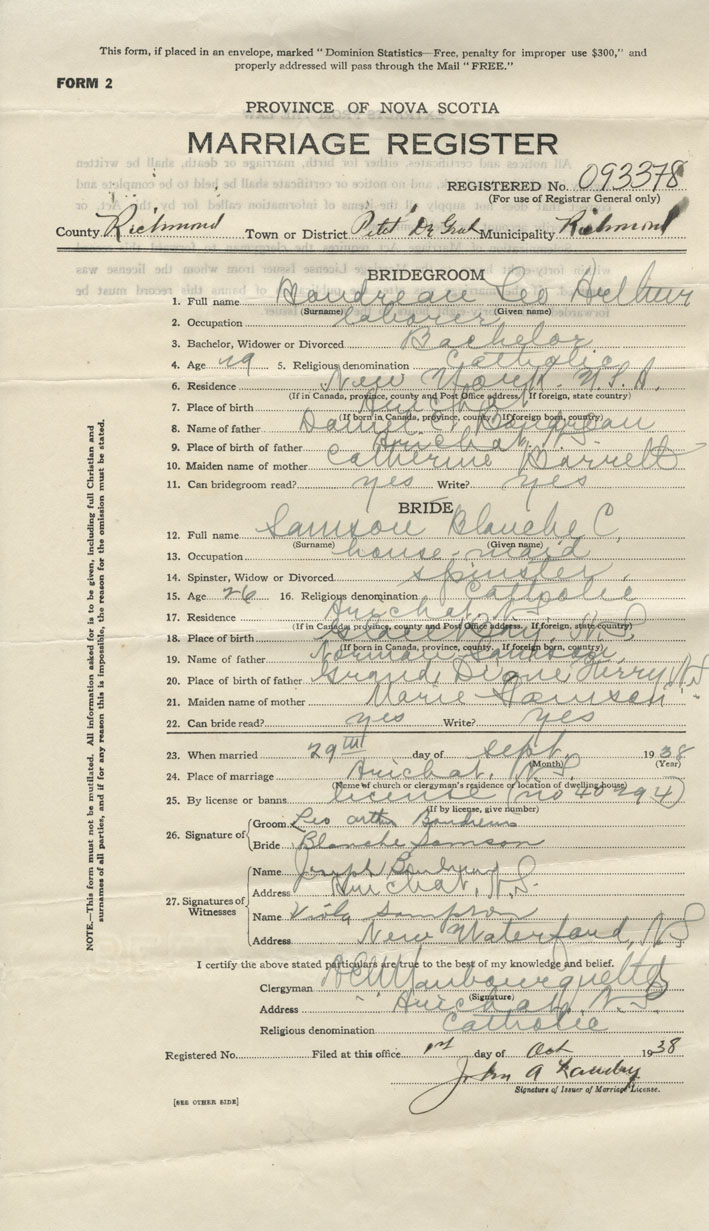 This form, if placed in an envelope, marked "Dominion Statistics—Free, penalty for improper use $300," and
properly addressed will pass through the Mail "FREE."
FORM 2
PROVINCE OF NOVA SCOTIA
MARRIAGE REGISTER
REGISTERED No. 093378
(For use of Registrar General only)
County Richmond Town or District Petit De Grat Municipality Richmond
BRIDEGROOM
1. Full name Boudreau Leo Arthur
(Surname) (Given name)
2. Occupation laborer
3. Bachelor, Widower or Divorced Bachelor
4. Age 29 5. Religious denomination Catholic
6. Residence New York. U.S.A.
(If in Canada, province, county and Post Office address. If foreign, state country)
7. Place of birth Arichat
(If born in Canada, province, county. If foreign born, country)
8. Name of father Daniel C. Boudreau
9. Place of birth of father Arichat, N.S.
10. Maiden name of mother Catherine Barrett
11. Can bridegroom read? yes Write? yes
BRIDE
12. Full name Samson Blanche C.
(Surname) (Given name)
13. Occupation house-maid
14. Spinster, Widow or Divorced spinster
15. Age 26 16. Religious denomination Catholic
17. Residence Arichat N.S.
(If in Canada, province, county and Post Office address. If foreign, state country)
18. Place of birth Glace Bay, N.S.
(If born in Canada, province, county. If foreign born, country)
19. Name of father Norman Samson
20. Place of birth of father Grand Digue Ferry N.S
21. Maiden name of mother Marie Samson
22. Can bride read? yes Write? yes
23. When married 29 day of sept. 1938
(Month) (Year)
24. Place of marriage Arichat, N.S.
(Name of church or clergyman's residence or location of dwelling house)
25. By license or banns license (no 40294)
(If by license, give number)
26. Signature of
Groom Leo Boudreau
Bride Blanche Samson
27. Signatures of Witnesses
Name Joseph
Address Arichat, N.S.
Name Viola Sampson
Address New Waterford, N.S
I certify the above stated particulars are true to the best of my knowledge and belief.
Clergyman
(Signature)
Address Arichat, N.S.
Religious denomination Catholic
Registered No. Filed at this office 1st day of Oct 1938
John A Landry
Signature of Issuer of Marriage License.
[SEE OTHER SIDE]
NOTE.—This form must not be mutilated. All information asked for is to be given, including full Christian and
surnames of all parties, and if for any reason this is impossible, the reason for the omission must be stated.